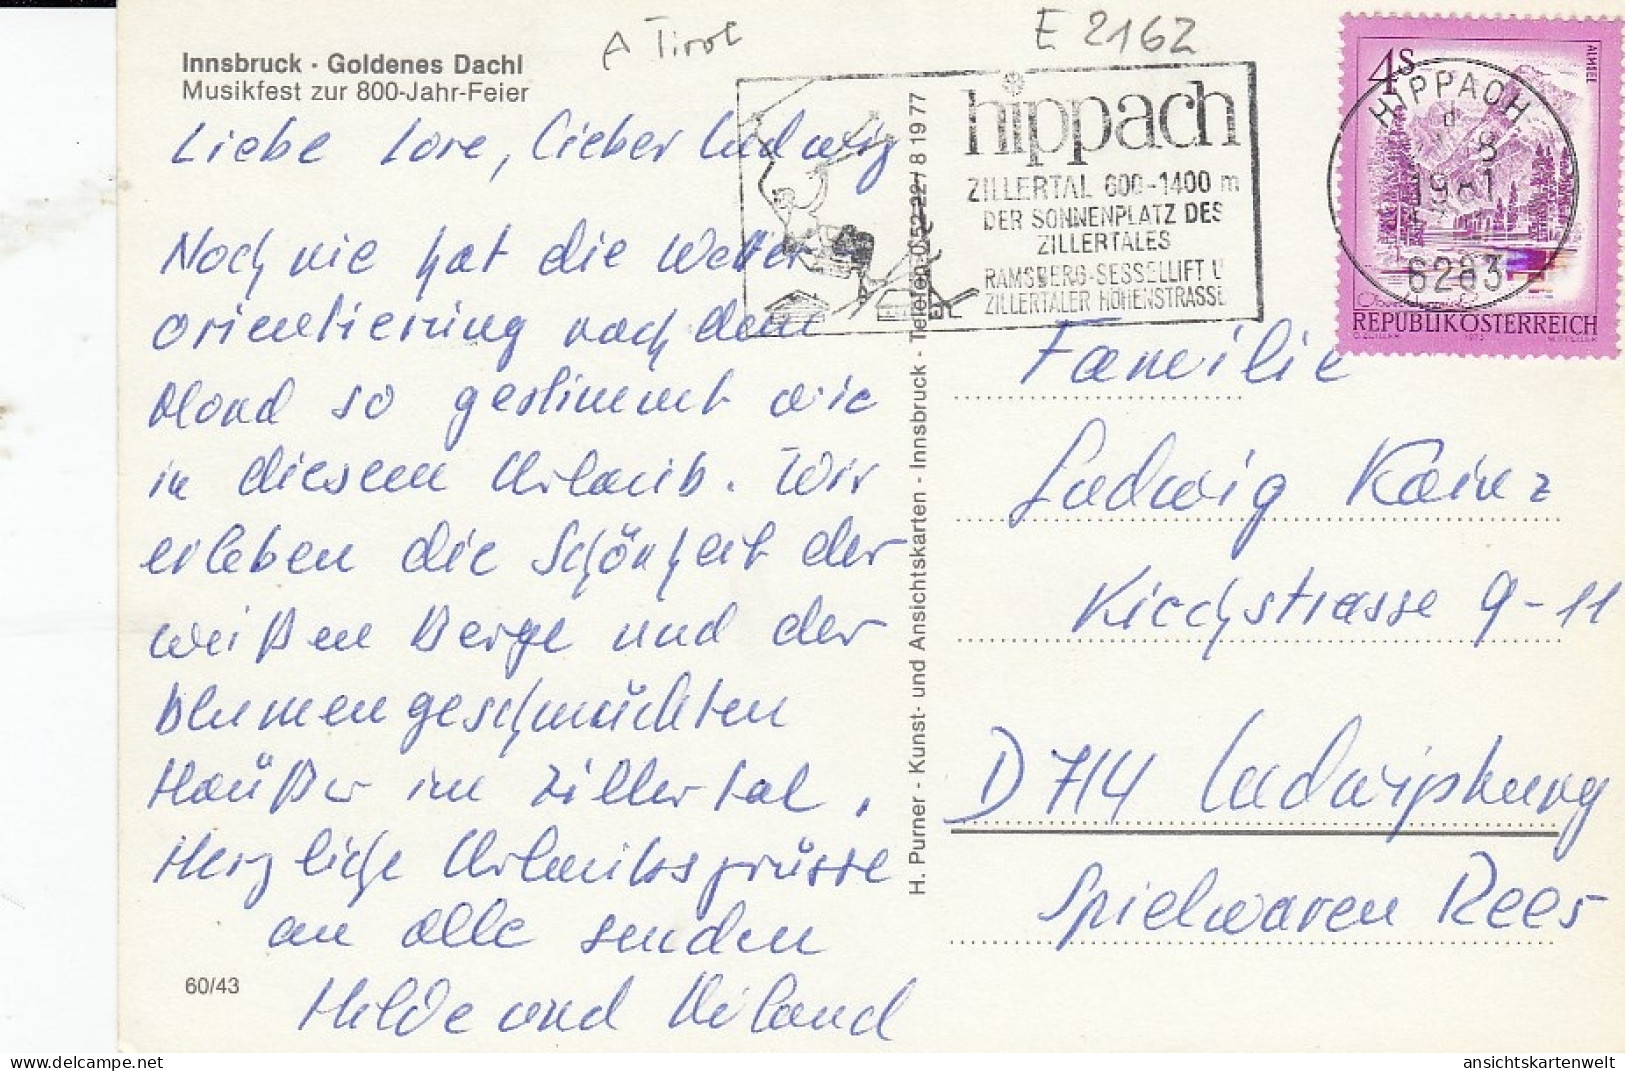 A Tirol
E 2162
Innsbruck · Goldenes Dachl
Musikfest zur 800-Jahr-Feier
Liebe Lore, lieber Ludwig
Noch nie hat die Wetter
orientierung nach dem
Mond so gestimmt wie
in diesem Urlaub. Wir
erleben die Schönheit der
weißen Berge und der
blumengeschmückten
Häußer im Zillertal.
Herzliche Urlaubsgrüsse
an alle senden
Hilde und
60/43
H. Purner - Kunst- und Ansichtskarten - Innsbruck - Telefon 0 52 22 / 8 19 77
hippach
ZILLERTAL 600-1400 m
DER SONNENPLATZ DES
ZILLERTALES
RAMSBERG-SESSELLIFT U
ZILLERTALER HÖHENSTRASSE
4S
ALMSEE
HIPPACH
1981
6283
REPUBLIK ÖSTERREICH
Familie
Ludwig Kainz
Kirchstrasse 9-11
D 714 Ludwigsburg
Spielwaren Rees
ansichtskartenwelt